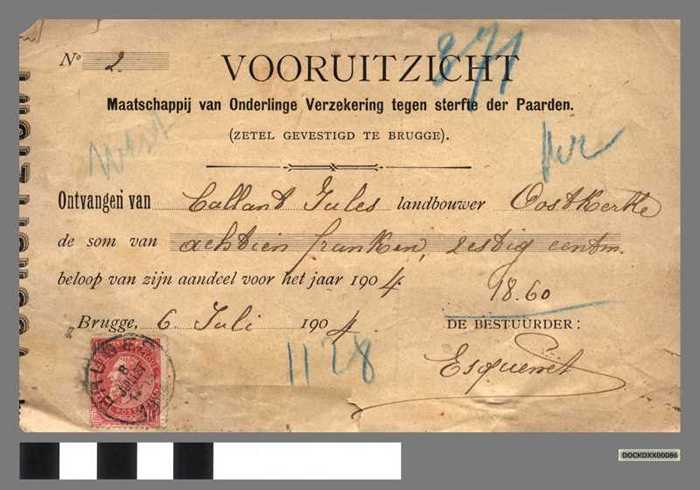 No 2
871
VOORUITZICHT
Maatschappij van Onderlinge Verzekering tegen sterfte der Paarden.
(ZETEL GEVESTIGD TE BRUGGE).
Ontvangen van Callant Jules landbouwer Oostkerke
de som van achtien franken, zestig centm.
beloop van zijn aandeel voor het jaar 1904
18.60
Brugge, 6 Juli 1904 DE BESTUURDER:
1128
BRUGES
8
JUILLET
DOCKDXX00086